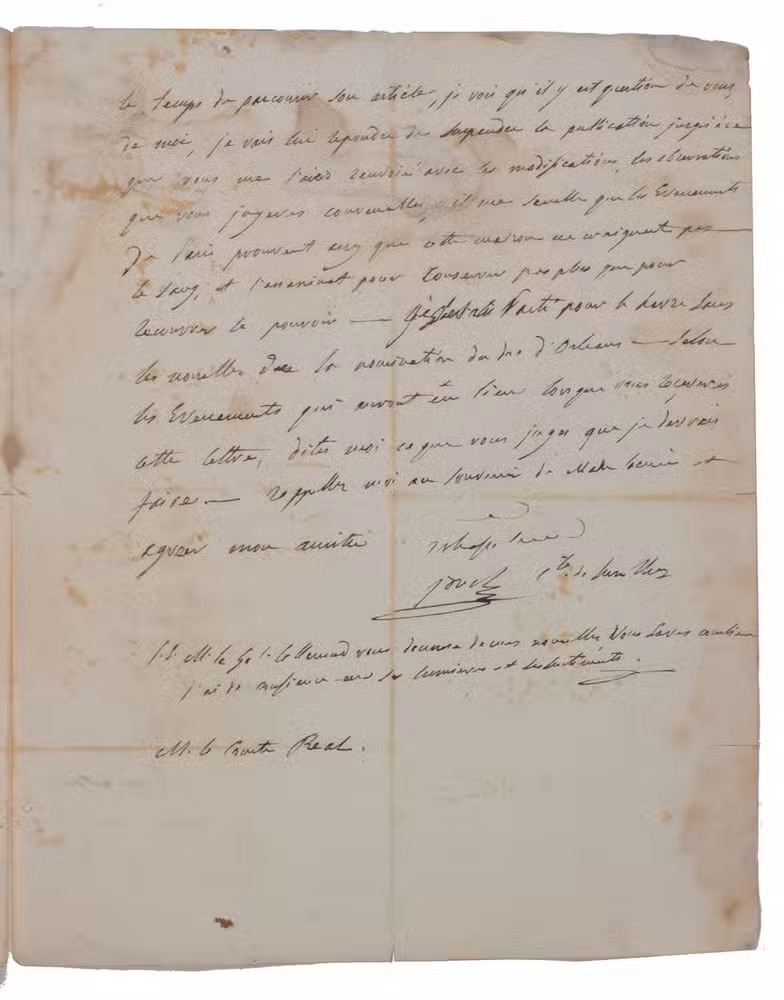 le temps de parcourir son article, je vois qu'il y est question de vous
de moi, je vais lui repondre de suspendre la publication jusqu'à ce
que vous me l'aiés renvoié avec les modifications, les observations
que vous jugeres convenables, il me semble que les Evenements
de Paris prouvent que cette maison ne craignent pas
le sang, et l'assassinat pour conserver pas plus que pour
recouvrer le pouvoir — pour le havre sans
les nouvelles de la nomination du duc d'Orleans — selon
les Evenements qui auront eu lieu lorsque vous recevrez
cette lettre, dites moi ce que vous juges que je devrais
faire — rappelles moi au souvenir de Made et
agreer mon amitié
joseph cte de Survilliers
P.S. M. le Gal Lallemand vous donnera de mes nouvelles Vous saves combien
j'ai de confiance en ses lumieres et ses sentiments.
M. le Comte Real.